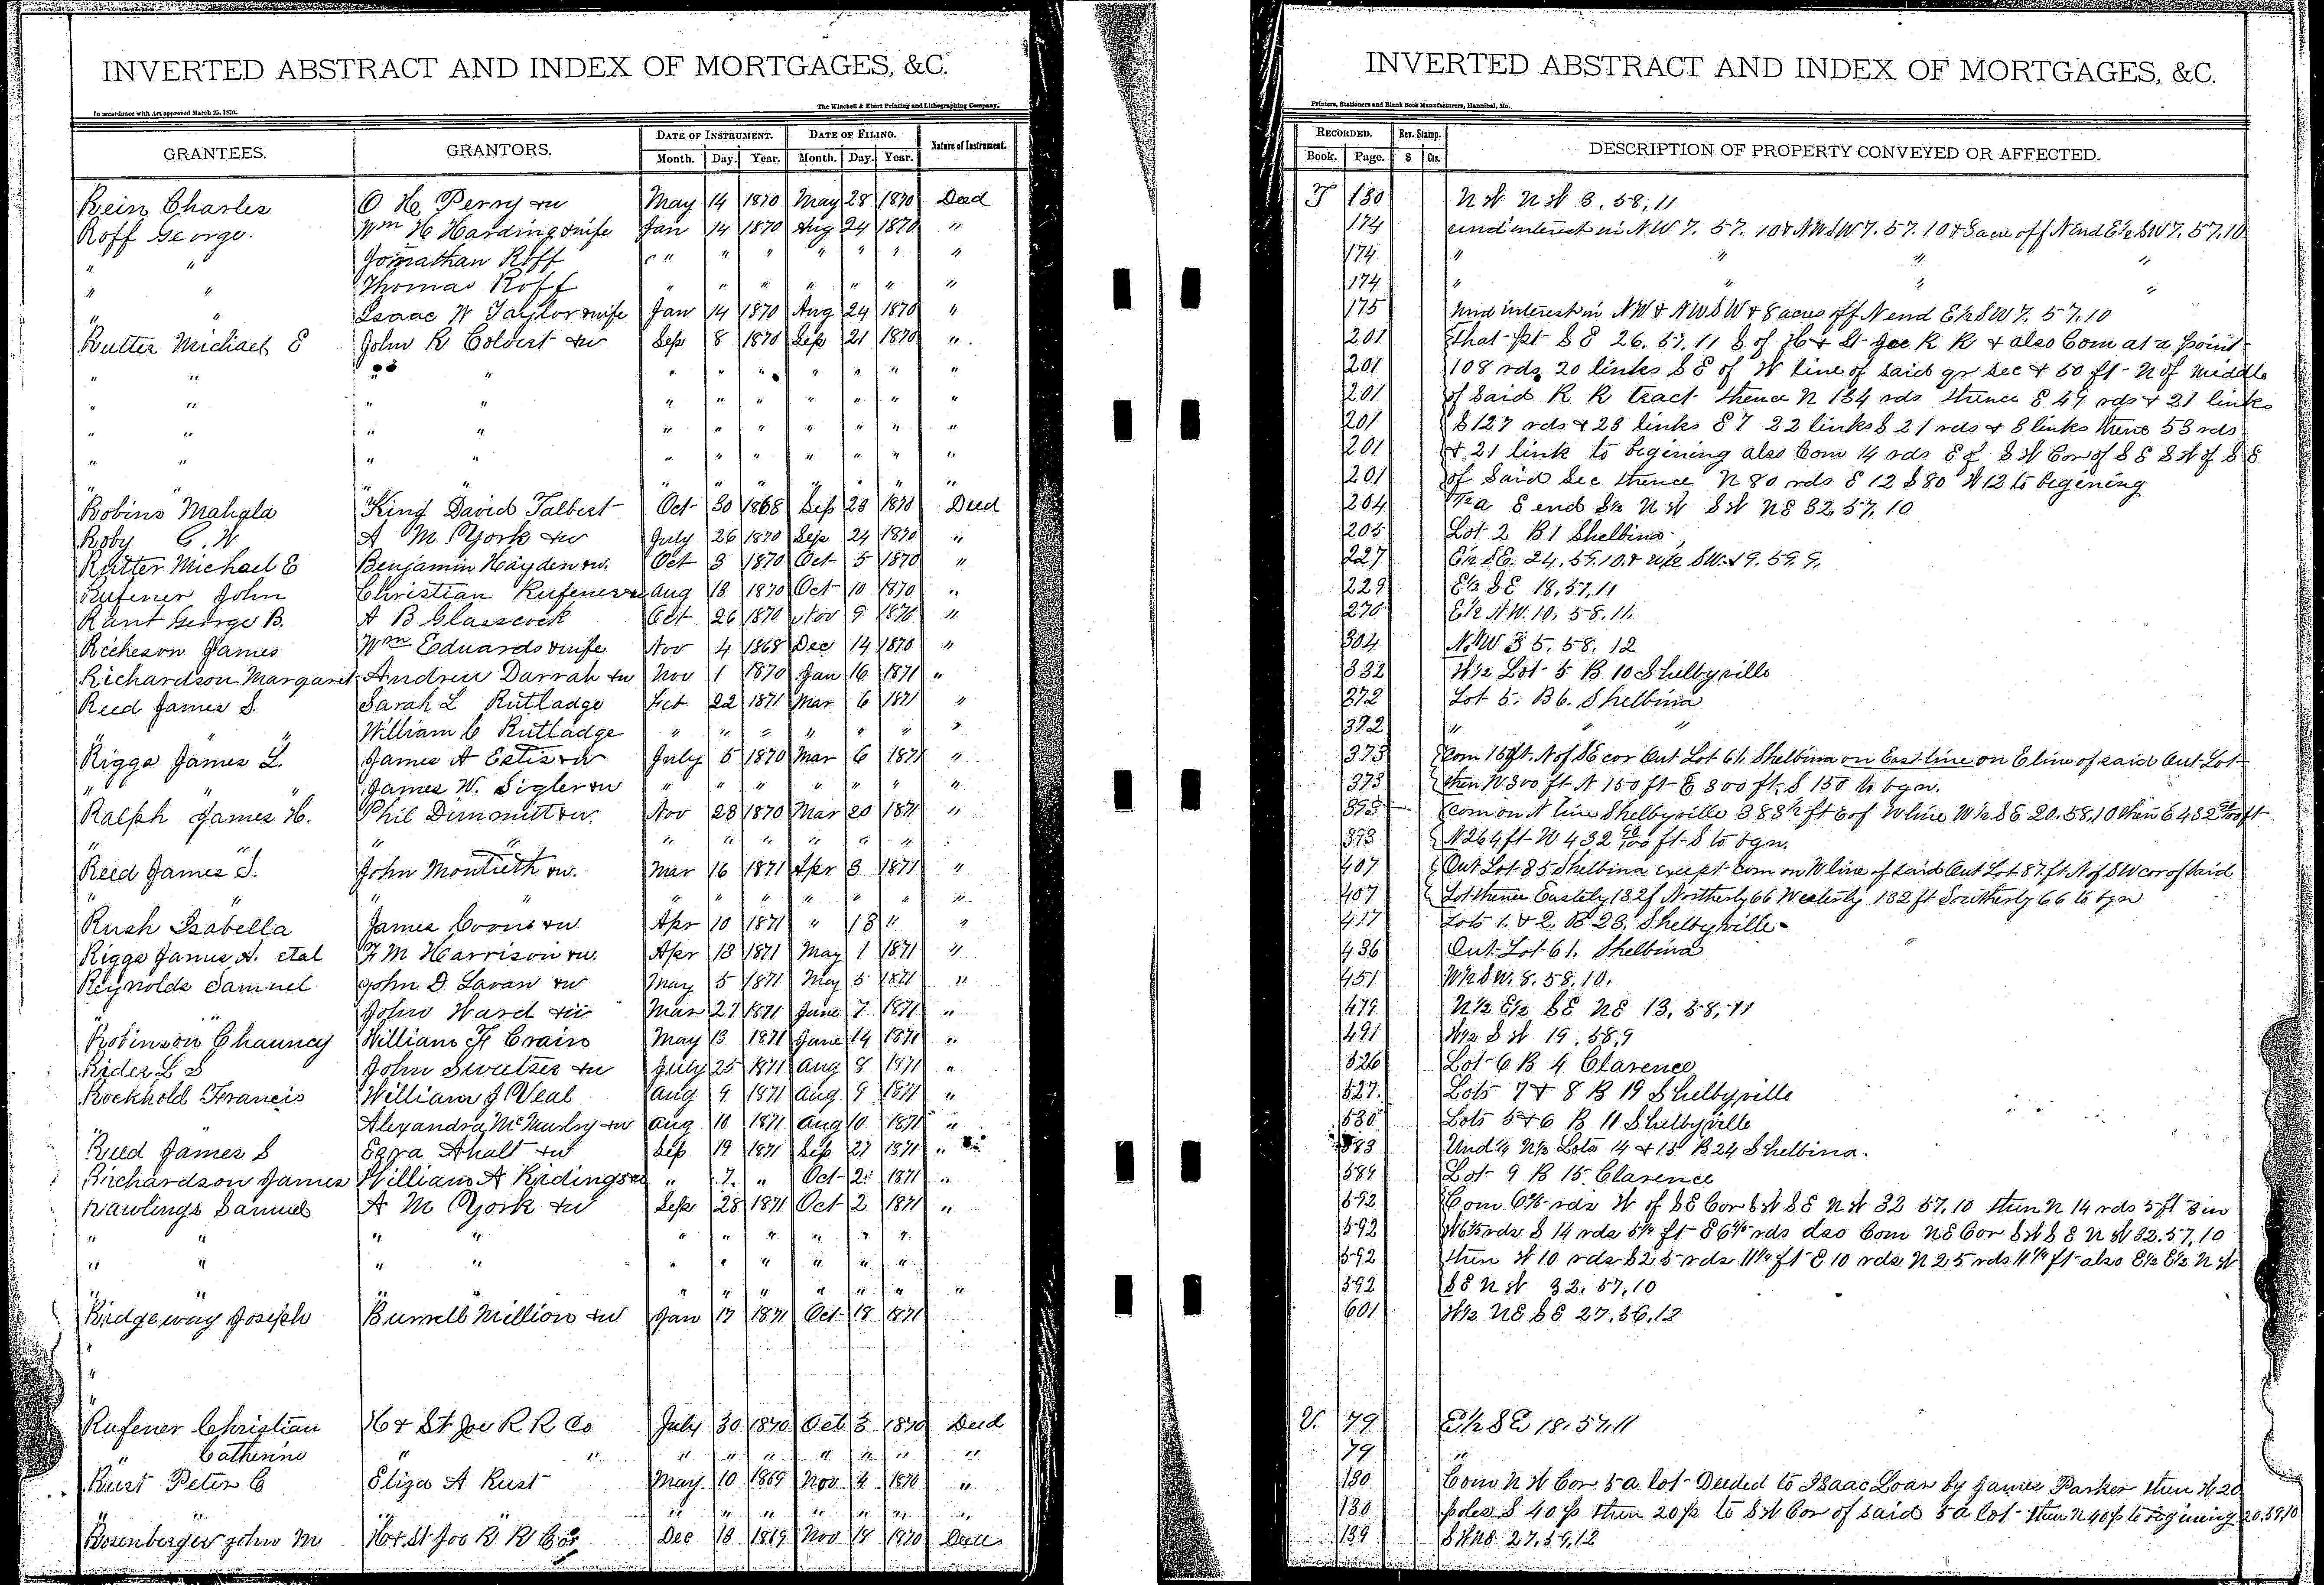 INVERTED ABSTRACT AND INDEX OF MORTGAGES, &C.
In accordance with Act approved March 25, 1870.
The Winchell & Ebert Printing and Lithographing Company,
GRANTEES. GRANTORS. DATE OF INSTRUMENT. DATE OF FILING. Nature of Instrument.
Month. Day. Year. Month. Day. Year.
Rein Charles O H Perry & w May 14 1870 May 28 1870 Deed
Roff George. Wm H Harding & wife Jan 14 1870 Aug 24 1870 "
" " Jonathan Roff " " " " " " "
" " Thomas Roff " " " " " " "
" " Isaac W Taylor & wife Jan 14 1870 Aug 24 1870 "
Rutter Michael E John R Colvert & w Sep 8 1870 Sep 21 1870 "
" " " " " " " " " "
" " " " " " " " " " "
" " " " " " " " " " "
" " " " " " " " " " "
" " " " " " " " " " "
Robins Mahala King David Talbert Oct 30 1868 Sep 23 1870 Deed
Roby G. W A M York & w July 26 1870 Sep 24 1870 "
Rutter Michael E Benjamin Hayden & w. Oct 3 1870 Oct 5 1870 "
Rufener John Christian Rufener & w Aug 18 1870 Oct 10 1870 "
Rant George B. A B Glasscock Oct 26 1870 Nov 9 1870 "
Richeson James Wm Edwards & wife Nov 4 1868 Dec 14 1870 "
Richardson Margaret Andrew Darrah & w Nov 1 1870 Jan 16 1871 "
Reed James S. Sarah L Rutladge Feb 22 1871 Mar 6 1871 "
" " William C Rutladge " " " " " " "
Riggs James L. James A Estis & w July 5 1870 Mar 6 1871 "
" " James W. Sigler & w " " " " " " "
Ralph James H. Phil Dimmitt & w. Nov 28 1870 Mar 20 1871 "
" " " " " " " " " " "
Reed James S. John Montieth & w. Mar 16 1871 Apr 3 1871 "
" " " " " " " " " " "
Rush Isabella James Coons & w Apr 10 1871 " 13 " "
Riggs James A. etal F M Harrison & w. Apr 18 1871 May 1 1871 "
Reynolds Samuel John D Lavan & w May 5 1871 May 5 1871 "
" " John Ward & w Mar 27 1871 June 7 1871 "
Robinson Chauncy William F Crain May 13 1871 June 14 1871 "
Rider L S John Sweetser & w July 25 1871 Aug 8 1871 "
Rockhold Francis William J Veal Aug 9 1871 Aug 9 1871 "
" Alexandra McMurtry & w Aug 10 1871 Aug 10 1871 "
Reed James S Ezra Ahalt & w Sep 19 1871 Sep 27 1871 "
Richardson James William A Ridings & w " 7 " Oct 2 1871 "
Rawlings Samuel A M York & w Sep 28 1871 Oct 2 1871 "
" " " " " " " " " "
" " " " " " " " " "
" " " " " " " " " " "
Ridgeway Joseph Burrell Million & w Jan 17 1871 Oct 18 1871
"
"
"
Rufener Christian H & St Joe R R Co July 30 1870 Oct 3 1870 Deed
" Catherine " " " " " " " " "
Rust Peter C Eliza A Rust May 10 1869 Nov 4 1870 "
" " " " " " " " " "
Rosenberger John M H & St Joe R R Co Dec 18 1869 Nov 18 1870 Deed
INVERTED ABSTRACT AND INDEX OF MORTGAGES, &C.
Printers, Stationers and Blank Book Manufacturers, Hannibal, Mo.
RECORDED. Rev. Stamp. DESCRIPTION OF PROPERTY CONVEYED OR AFFECTED.
Book. Page. $ Cts.
T 130 N W N W 3. 58, 11
174 und interest in NW 7. 57. 10 & NWSW 7. 57. 10 & 8 acre off N end E½ SW 7. 57. 10
174 " " " "
174 " " " "
175 Und interest in NW & NWSW & 8 acres off N end E½ SW 7. 57. 10
201 That pt S E 26. 57. 11 S of H & St Joe R R & also Com at a point
201 108 rds 20 links S E of W line of said qr Sec & 50 ft N of middle
201 of Said R R tract thence N 134 rds thence E 49 rds & 21 links
201 S 127 rds & 23 links E 7 22 links S 21 rds & 8 links thence 53 rds
201 & 21 link to begining also Com 14 rds E of S W Cor of S E S W of S E
201 of Said Sec thence N 80 rds E 12 S 80 W 12 to begining
204 E end S½ N W S W N E 32. 57. 10
205 Lot 2 B 1 Shelbina
227 E½ SE. 24. 59. 10. & W½ SW. 19. 59. 9.
229 E½ S E 18, 57, 11
270 E½ N.W. 10. 58. 11.
304 N.W 35. 58. 12
332 W½ Lot 5 B 10 Shelbyville
372 Lot 5. B 6. Shelbina
372 " " "
373 Com 150 ft. N of SE cor Out Lot 61. Shelbina on East line on E line of said Out Lot
373 then W 300 ft N 150 ft E 300 ft. S 150 to bgn.
393 Com on N line Shelbyville 383½ ft E of W line W½ SE 20. 58. 10 then E 432 ft
393 N 264 ft W 432 ft S to bgn.
407 Out Lot 85 Shelbina except com on W line of said Out Lot 87 ft N of SW cor of said
407 Lot thence Easterly 132 f Northerly 66 Westerly 132 ft Southerly 66 to bgn
417 Lots 1. & 2. B 23. Shelbyville
436 Out Lot 61. Shelbina
451 W½ SW. 8. 58. 10.
479 N½ E½ SE NE 13, 58, 11
491 W½ S W 19. 58, 9
526 Lot 6 B 4 Clarence
527. Lots 7 & 8 B 19 Shelbyville
530 Lots 5 & 6 B 11 Shelbyville
583 Und ¼ N½ Lots 14 & 15 B 24 Shelbina.
589 Lot 9 B 15 Clarence
592 Com 6⅔ rds W of S E Cor S W S E N W 32 57, 10 then N 14 rds 5 ft 3 in
592 W 6⅔ rds S 14 rds 5¼ ft E 6⅔ rds also Com N E Cor S W S E N W 32. 57, 10
592 then W 10 rds S 25 rds 11¼ ft E 10 rds N 25 rds 11¼ ft also E½ E½ N W
592 S E N W 32. 57, 10
601 W½ N E S E 27. 56, 12
U. 79 E½ S E 18. 57. 11
79 "
130 Com N W Cor 5 a lot Deeded to Isaac Loar by James Parker then W 20
130 poles S 40 p then 20 p to S W Cor of said 5 a lot then N 40 p to begining 20, 59, 10
139 S W N E 27, 59, 12